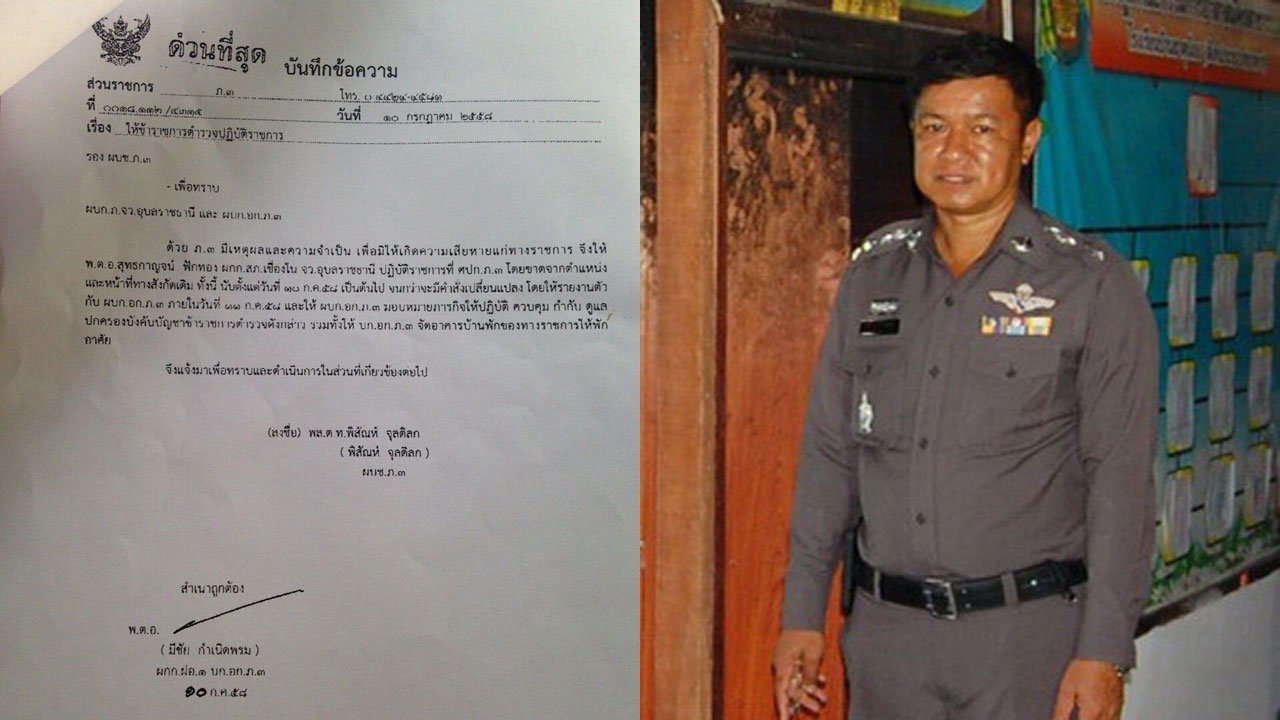 ด่วนที่สุด
บันทึกข้อความ
ส่วนราชการ ภ.๓ โทร. ๐ ๔๔๒๔-๔๕๘๑
ที่ ๐๐๑๘.๑๑๒/๔๓๑๕ วันที่ ๑๐ กรกฎาคม ๒๕๕๘
เรื่อง ให้ข้าราชการตำรวจปฏิบัติราชการ
รอง ผบช.ภ.๓
- เพื่อทราบ
ผบก.ภ.จว.อุบลราชธานี และ ผบก.อก.ภ.๓
ด้วย ภ.๓ มีเหตุผลและความจำเป็น เพื่อมิให้เกิดความเสียหายแก่ทางราชการ จึงให้
พ.ต.อ.สุทธกาญจน์ ฟักทอง ผกก.สภ.เขื่องใน จว.อุบลราชธานี ปฏิบัติราชการที่ ศปก.ภ.๓ โดยขาดจากตำแหน่ง
และหน้าที่ทางสังกัดเดิม ทั้งนี้ นับตั้งแต่วันที่ ๑๐ ก.ค.๕๘ เป็นต้นไป จนกว่าจะมีคำสั่งเปลี่ยนแปลง โดยให้รายงานตัว
กับ ผบก.อก.ภ.๓ ภายในวันที่ ๑๑ ก.ค.๕๘ และให้ ผบก.อก.ภ.๓ มอบหมายภารกิจให้ปฏิบัติ ควบคุม กำกับ ดูแล
ปกครองบังคับบัญชาข้าราชการตำรวจดังกล่าว รวมทั้งให้ บก.อก.ภ.๓ จัดอาคารบ้านพักของทางราชการให้พัก
อาศัย
จึงแจ้งมาเพื่อทราบและดำเนินการในส่วนที่เกี่ยวข้องต่อไป
(ลงชื่อ) พล.ต.ท.พิสัณห์ จุลดิลก
( พิสัณห์ จุลดิลก )
ผบช.ภ.๓
สำเนาถูกต้อง
พ.ต.อ.
( มีชัย กำเนิดพรม )
ผกก.ฝอ.๑ บก.อก.ภ.๓
๑๐ ก.ค.๕๘